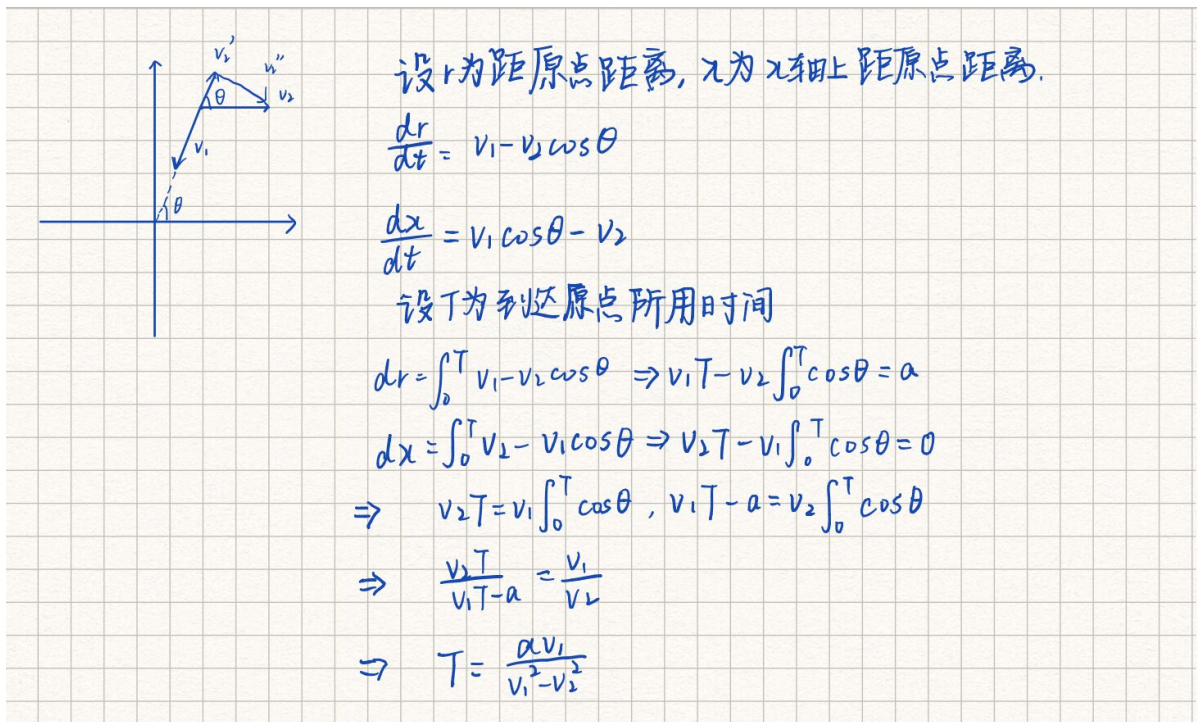 设r为距原点距离, x为x轴上距原点距离.
v₂' v₂'' v₂ θ
v₁
θ
dr/dt = v₁-v₂cosθ
dx/dt = v₁cosθ-v₂
设T为到达原点所用时间
dr=∫₀ᵀ v₁-v₂cosθ ⇒ v₁T-v₂∫₀ᵀcosθ=a
dx=∫₀ᵀ v₂-v₁cosθ ⇒ v₂T-v₁∫₀ᵀcosθ=0
⇒ v₂T=v₁∫₀ᵀcosθ, v₁T-a=v₂∫₀ᵀcosθ
⇒ v₂T/(v₁T-a) = v₁/v₂
⇒ T= av₁/(v₁²-v₂²)